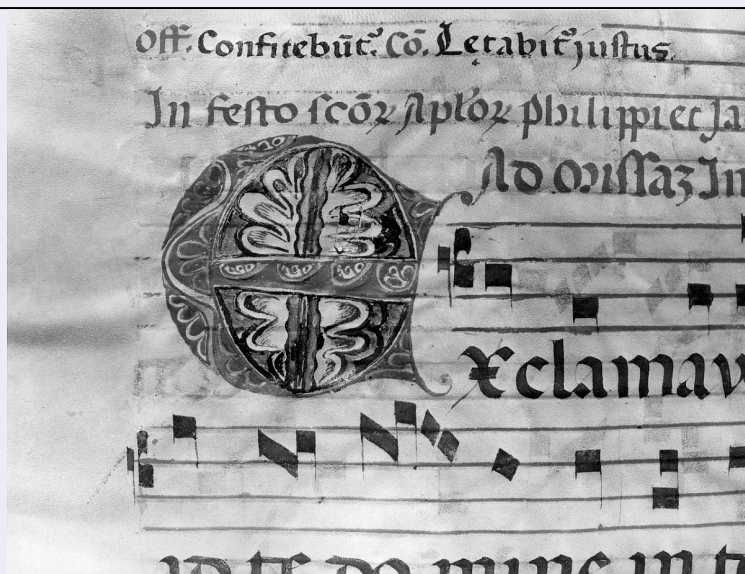 Off. Confitebūt᷒. Cō. Letabit᷒ justus.
In festo scōꝝ Aplōꝝ Philippi et Ja
Ad Missaꝫ In
Exclamav
te do mine in